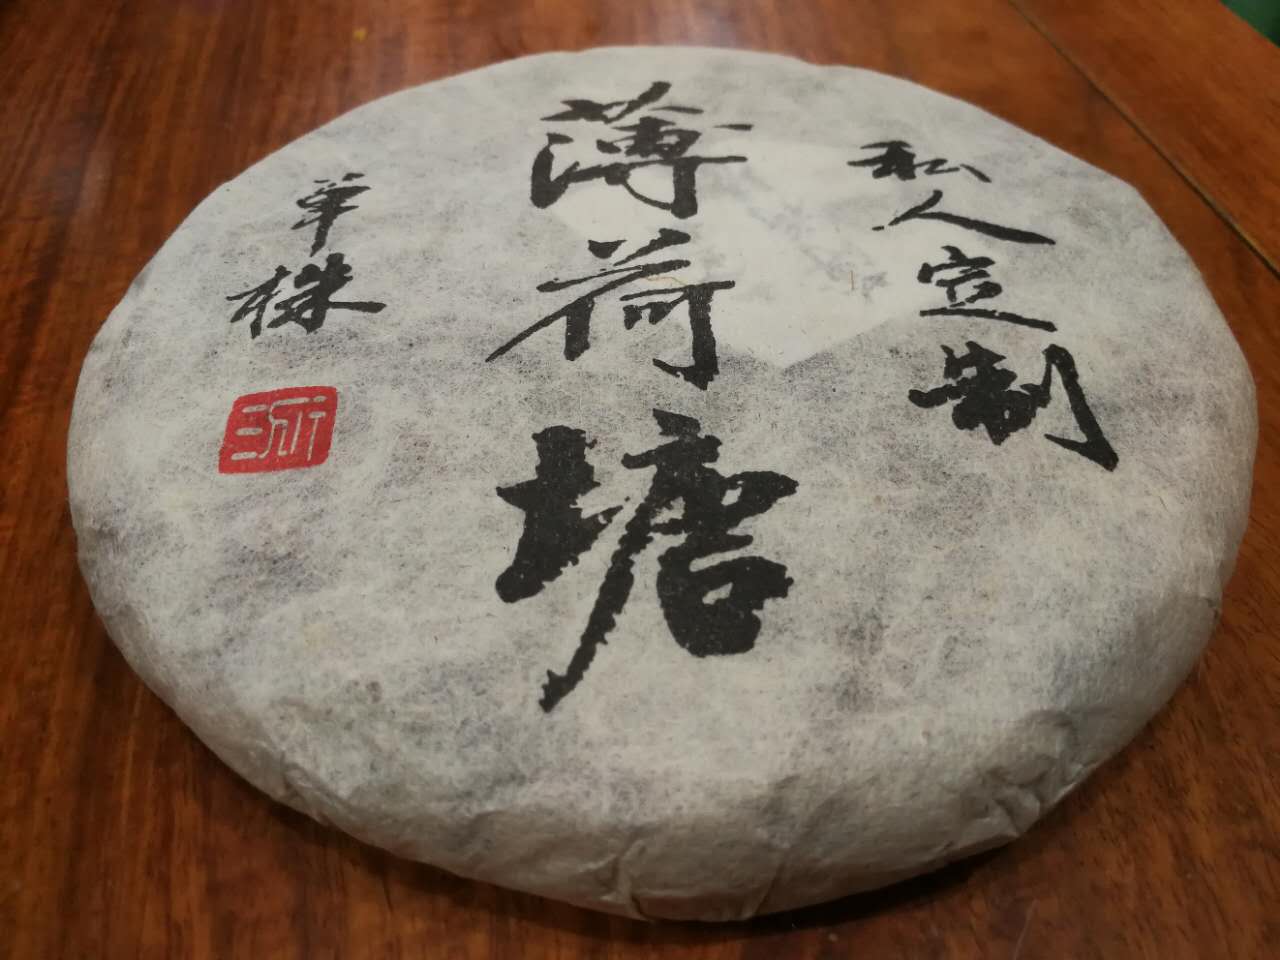 私人定制
薄荷塘
单株